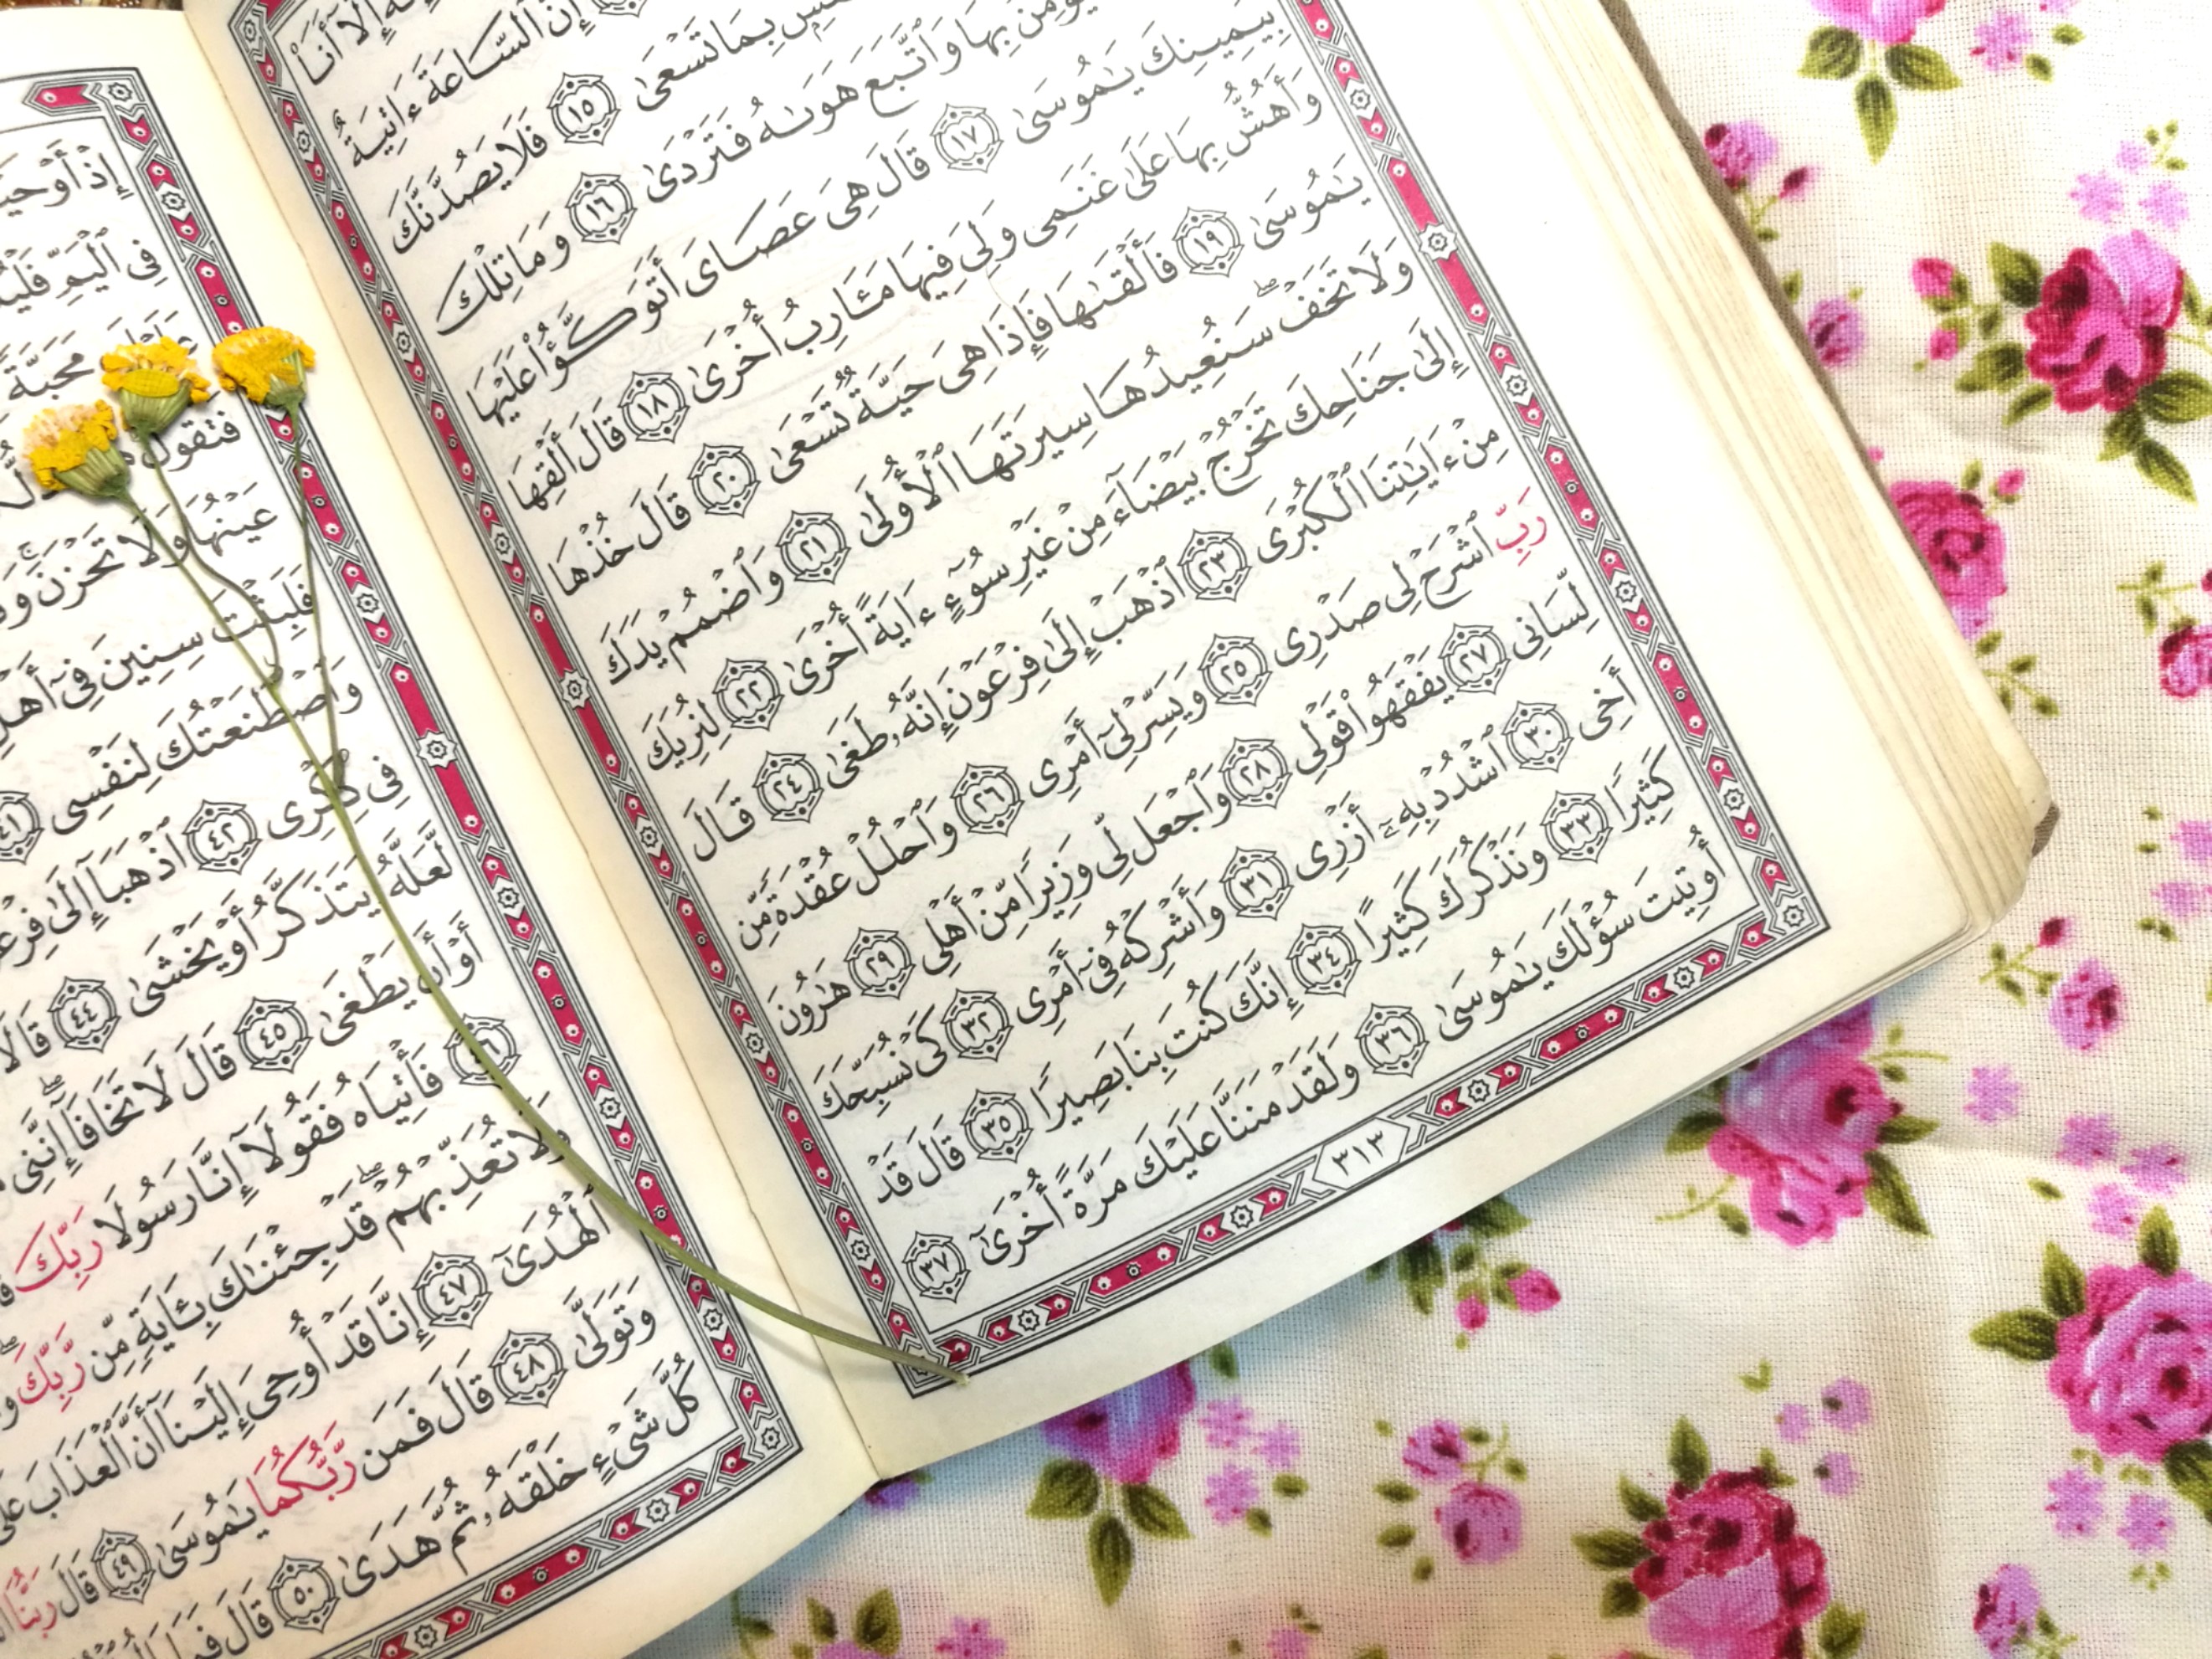 إِلَّآ أَنَا۠
إِنَّ ٱلسَّاعَةَ ءَاتِيَةٌ
بِمَا تَسْعَىٰ ١٥ فَلَا يَصُدَّنَّكَ
بِهَا وَٱتَّبَعَ هَوَىٰهُ فَتَرْدَىٰ ١٦ وَمَا تِلْكَ
بِيَمِينِكَ يَٰمُوسَىٰ ١٧ قَالَ هِىَ عَصَاىَ أَتَوَكَّؤُا۟ عَلَيْهَا
وَأَهُشُّ بِهَا عَلَىٰ غَنَمِى وَلِىَ فِيهَا مَـَٔارِبُ أُخْرَىٰ ١٨ قَالَ أَلْقِهَا
يَٰمُوسَىٰ ١٩ فَأَلْقَىٰهَا فَإِذَا هِىَ حَيَّةٌ تَسْعَىٰ ٢٠ قَالَ خُذْهَا
وَلَا تَخَفْ ۖ سَنُعِيدُهَا سِيرَتَهَا ٱلْأُولَىٰ ٢١ وَٱضْمُمْ يَدَكَ
إِلَىٰ جَنَاحِكَ تَخْرُجْ بَيْضَآءَ مِنْ غَيْرِ سُوٓءٍ ءَايَةً أُخْرَىٰ ٢٢ لِنُرِيَكَ
مِنْ ءَايَٰتِنَا ٱلْكُبْرَى ٢٣ ٱذْهَبْ إِلَىٰ فِرْعَوْنَ إِنَّهُۥ طَغَىٰ ٢٤ قَالَ
رَبِّ ٱشْرَحْ لِى صَدْرِى ٢٥ وَيَسِّرْ لِىٓ أَمْرِى ٢٦ وَٱحْلُلْ عُقْدَةً مِّن
لِّسَانِى ٢٧ يَفْقَهُوا۟ قَوْلِى ٢٨ وَٱجْعَل لِّى وَزِيرًا مِّنْ أَهْلِى ٢٩ هَٰرُونَ
أَخِى ٣٠ ٱشْدُدْ بِهِۦٓ أَزْرِى ٣١ وَأَشْرِكْهُ فِىٓ أَمْرِى ٣٢ كَىْ نُسَبِّحَكَ
كَثِيرًا ٣٣ وَنَذْكُرَكَ كَثِيرًا ٣٤ إِنَّكَ كُنتَ بِنَا بَصِيرًا ٣٥ قَالَ قَدْ
أُوتِيتَ سُؤْلَكَ يَٰمُوسَىٰ ٣٦ وَلَقَدْ مَنَنَّا عَلَيْكَ مَرَّةً أُخْرَىٰٓ ٣٧
٣١٣
إِذْ
فِى ٱلْيَمِّ
مَحَبَّةً
عَيْنُهَا وَلَا تَحْزَنَ ۚ
فَلَبِثْتَ سِنِينَ فِىٓ
وَٱصْطَنَعْتُكَ لِنَفْسِى ٤١
فِى ذِكْرِى ٤٢ ٱذْهَبَآ إِلَىٰ
لَّعَلَّهُۥ يَتَذَكَّرُ أَوْ يَخْشَىٰ ٤٤
أَوْ أَن يَطْغَىٰ ٤٥ قَالَ لَا تَخَافَآ ۖ إِنَّنِى
٤٦ فَأْتِيَاهُ فَقُولَآ إِنَّا رَسُولَا رَبِّكَ
وَلَا تُعَذِّبْهُمْ ۖ قَدْ جِئْنَٰكَ بِـَٔايَةٍ مِّن رَّبِّكَ ۖ
ٱلْهُدَىٰٓ ٤٧ إِنَّا قَدْ أُوحِىَ إِلَيْنَآ أَنَّ ٱلْعَذَابَ
وَتَوَلَّىٰ ٤٨ قَالَ فَمَن رَّبُّكُمَا يَٰمُوسَىٰ ٤٩ قَالَ رَبُّنَا
كُلَّ شَىْءٍ خَلْقَهُۥ ثُمَّ هَدَىٰ ٥٠ قَالَ